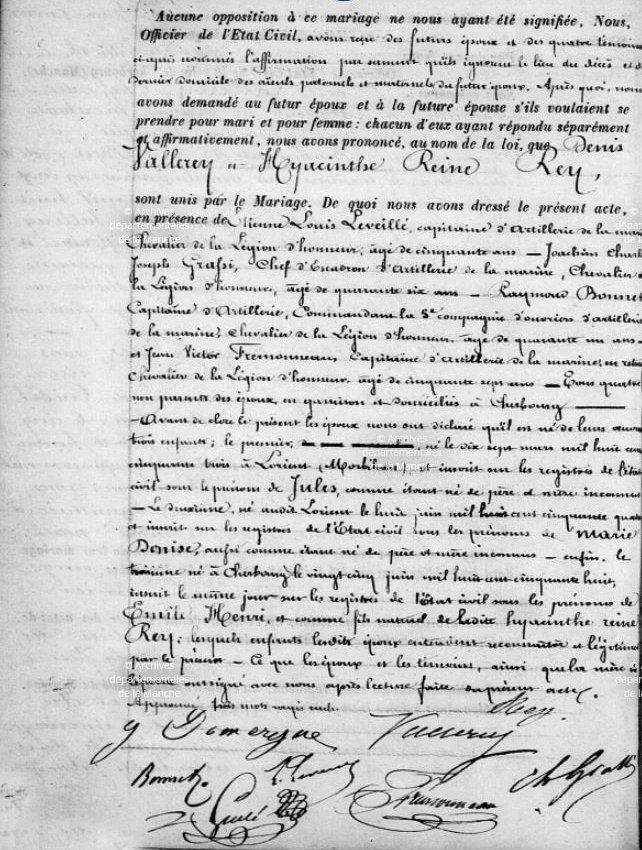 Aucune opposition à ce mariage ne nous ayant été signifiée, Nous,
Officier de l'Etat Civil, avons reçu des futurs époux et des quatre témoins
ci-après nommés l'affirmation par serment qu'ils ignorent le lieu du décès et du
dernier domicile des aïeuls paternels et maternels du futur époux. Après quoi, nous
avons demandé au futur époux et à la future épouse s'ils voulaient se
prendre pour mari et pour femme : chacun d'eux ayant répondu séparément
et affirmativement, nous avons prononcé, au nom de la loi, que Denis
Vallerey et Hyacinthe Reine Rey,
sont unis par le Mariage. De quoi nous avons dressé le présent acte,
en présence de Etienne Louis Leveillé, capitaine d'Artillerie de la marine
Chevalier de la Légion d'honneur, âgé de cinquante ans — Joachim Charles
Joseph Grassi, Chef d'Escadron d'Artillerie de la marine, Chevalier de
la Légion d'honneur, âgé de quarante six ans — Raymond Bonnet
Capitaine d'Artillerie, Commandant la 5e compagnie d'ouvriers d'artillerie
de la marine, Chevalier de la Légion d'honneur, âgé de quarante un ans —
et Jean Victor Fremonneau, Capitaine d'Artillerie de la marine, en retraite
Chevalier de la Légion d'honneur, âgé de cinquante sept ans — Tous quatre
non parents des époux, en garnison et domiciliés à Cherbourg
— Avant de clore le présent les époux nous ont déclaré qu'il en né de leurs œuvres
trois enfants ; le premier, né le dix sept mars mil huit cent
cinquante trois à Lorient (Morbihan), et inscrit sur les registres de l'état
civil sous le prénom de Jules, comme étant né de père et mère inconnus
— Le deuxième, né audit Lorient le huit juin mil huit cent cinquante quatre
et inscrit sur les registres de l'Etat civil sous les prénoms de Marie
Denise, aussi comme étant né de père et mère inconnus — enfin, le
troisième né à Cherbourg le vingt cinq juin mil huit cent cinquante huit,
inscrit le même jour sur les registres de l'état civil sous les prénoms de
Emile Henri, et comme fils naturel de ladite hyacinthe reine
Rey ; lesquels enfants lesdits époux entendent reconnaître et légitimer
par le présent — Ce que les époux et les témoins, ainsi que la mère
ont signé avec nous après lecture faite du présent acte.
Approuvé trois mots rayés nuls. Rey.
Domergue Vallerey
Bonnet Fremonneau Ch Grassi
© Archives
départementales
de la Manche
© Archives
départementales
de la Manche
© Archives
départementales
de la Manche